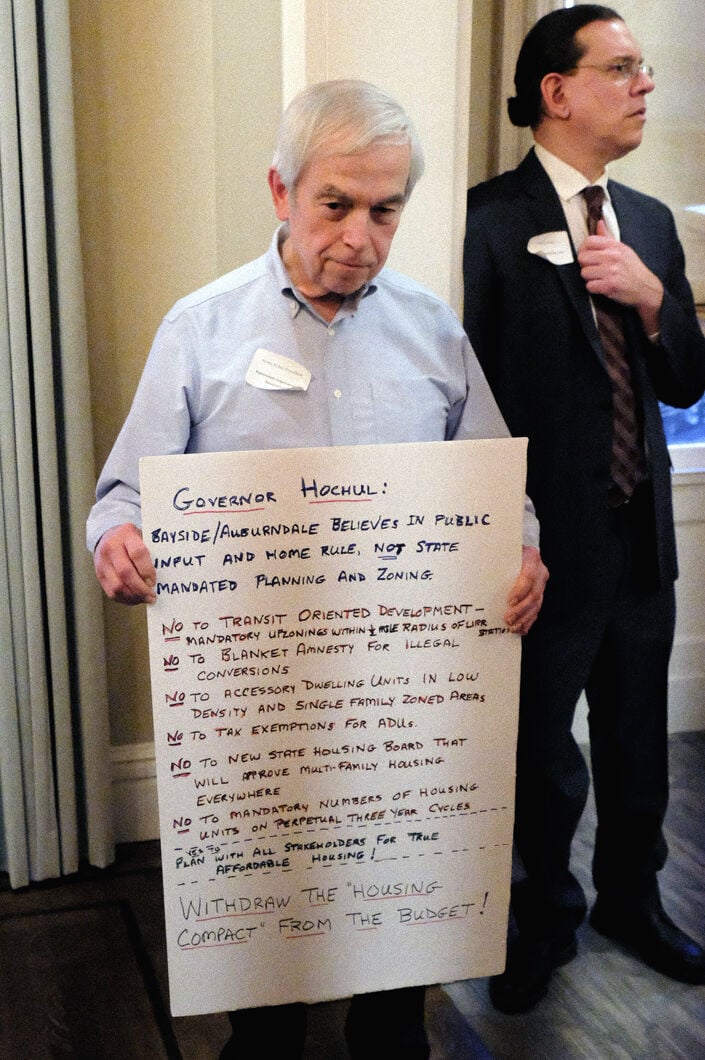 GOVERNOR HOCHUL:
BAYSIDE/AUBURNDALE BELIEVES IN PUBLIC
INPUT AND HOME RULE, NOT STATE
MANDATED PLANNING AND ZONING
NO TO TRANSIT ORIENTED DEVELOPMENT-
MANDATORY UPZONINGS WITHIN ½ MILE RADIUS OF LIRR STATIONS
NO TO BLANKET AMNESTY FOR ILLEGAL
CONVERSIONS
NO TO ACCESSORY DWELLING UNITS IN LOW
DENSITY AND SINGLE FAMILY ZONED AREAS
NO TO TAX EXEMPTIONS FOR ADUs.
NO TO NEW STATE HOUSING BOARD THAT
WILL APPROVE MULTI-FAMILY HOUSING
EVERYWHERE
NO TO MANDATORY NUMBERS OF HOUSING
UNITS ON PERPETUAL THREE YEAR CYCLES
YES TO
PLAN WITH ALL STAKEHOLDERS FOR TRUE
AFFORDABLE HOUSING!
WITHDRAW THE "HOUSING
COMPACT" FROM THE BUDGET!